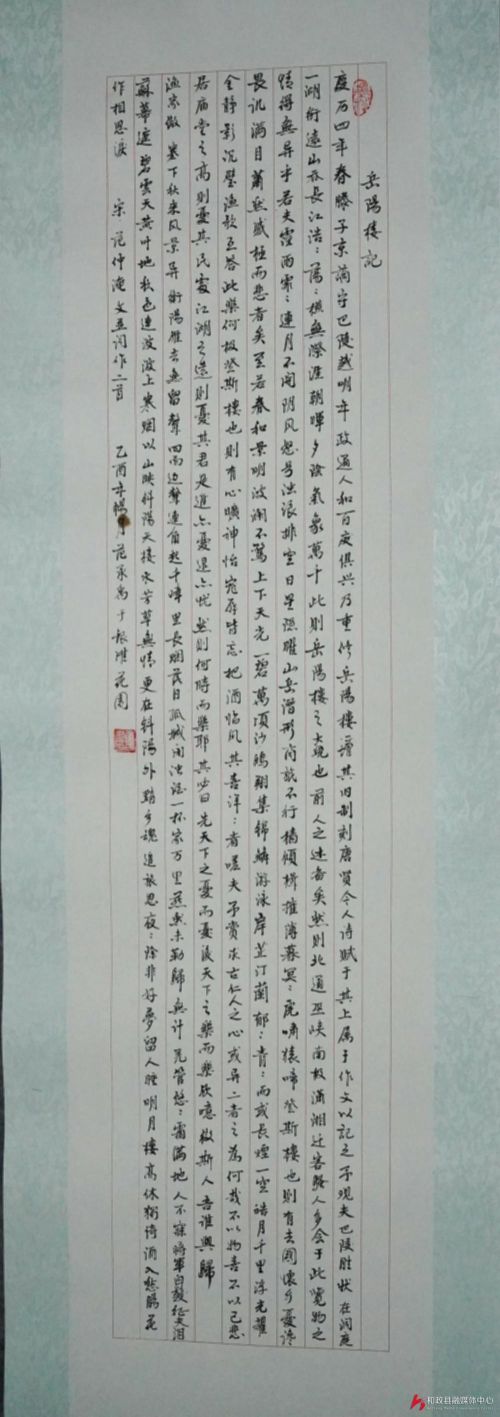 岳陽樓記
度历四年春滕子京谪守巴陵越明年政通人和百废俱兴乃重修岳陽樓增其旧制刻唐贤今人诗赋于其上属于作文以記之予观夫巴陵胜状在洞庭
一湖衔遠山吞長江浩：蕩：橫無際涯朝暉夕陰氣象萬千此則岳陽樓之大观也前人之述备矣然則北通巫峡南极瀟湘迁客騷人多会于此覽物之
情得無异乎若夫霪雨霏：連月不开阴风怒号浊浪排空日星隱曜山岳潜形商旅不行檣傾楫摧薄暮冥：虎啸猿啼登斯樓也則有去國懷乡憂讒
畏讥满目萧然感极而悲者矣至若春和景明波澜不驚上下天光一碧萬頃沙鷗翔集錦鱗游泳岸芷汀蘭郁：青：而或長煙一空皓月千里浮光躍
金静影沉璧渔歌互答此樂何极登斯樓也則有心曠神怡宠辱皆忘把酒临风其喜洋：者嗟夫予嘗求古仁人之心或异二者之為何哉不以物喜不以己悲
居庙堂之高則憂其民處江湖之遠則憂其君是進亦憂退亦忧然則何時而樂耶其必曰先天下之憂而憂後天下之樂而樂欤噫微斯人吾谁與歸
渔家傲 塞下秋来风景异衡陽雁去無留聲四面边聲連角起千嶂里長烟落日孤城闭浊酒一杯家万里燕然未勒歸無計羌管悠：霜满地人不寐將軍白髮征夫泪
蘇幕遮 碧雲天黄叶地秋色連波波上寒烟以山映斜陽天接水芳草無情更在斜陽外黯乡魂追旅思夜：除非好夢留人睡明月樓高休獨倚酒入愁腸花
作相思淚 宋 范仲淹文並词作二首 乙酉年 月范 于 花園
和政县融媒体中心